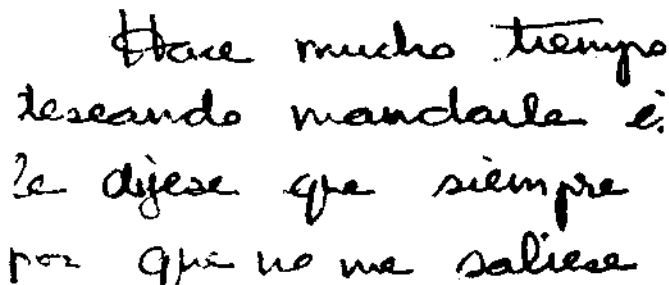 Hace mucho tiempo
deseando mandarle
le dijese que siempre
por que no me saliese